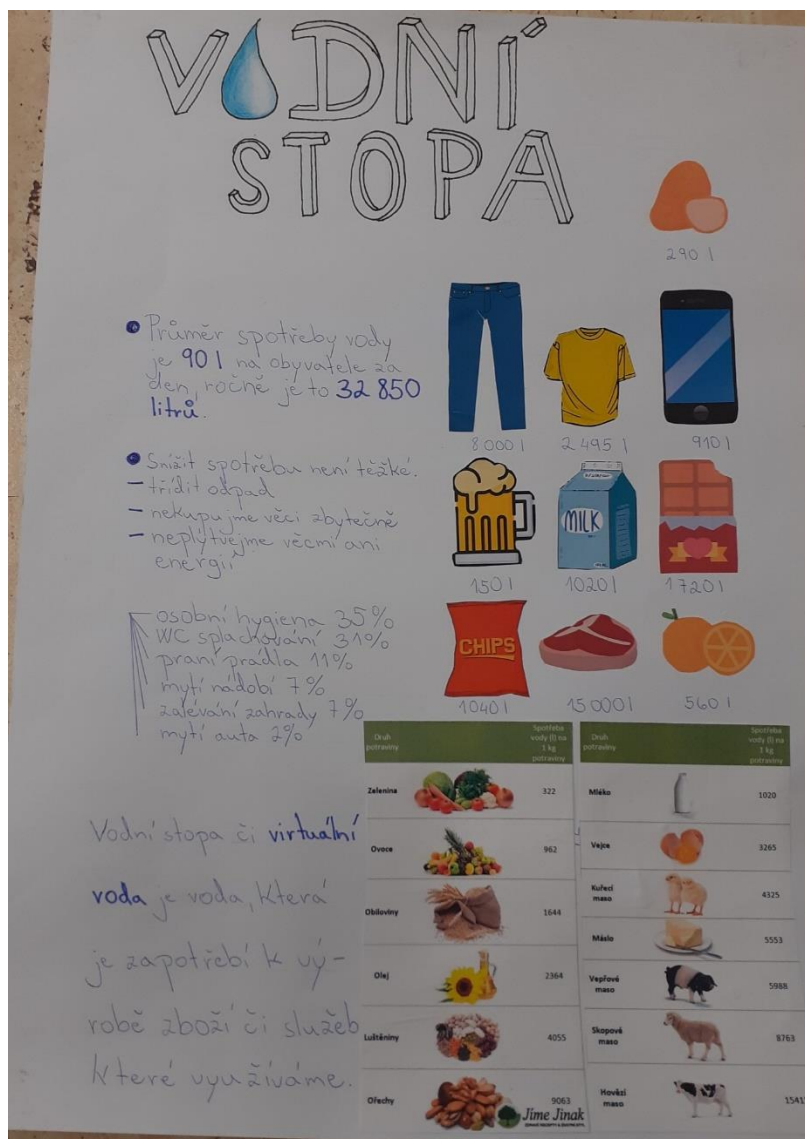 VODNÍ
STOPA
290 l
• Průměr spotřeby vody
je 90 l na obyvatele za
den, ročně je to 32 850
litrů.
8 000 l
2 495 l
910 l
• Snížit spotřebu není těžké.
– třídit odpad
– nekupujme věci zbytečně
– neplýtvejme věcmi ani
energií
MILK
150 l
1020 l
1720 l
osobní hygiena 35%
WC splachování 31%
praní prádla 11%
mytí nádobí 7%
zalévání zahrady 7%
mytí auta 2%
CHIPS
1040 l
15 000 l
560 l
Vodní stopa či virtuální
voda je voda, která
je zapotřebí k vý-
robě zboží či služeb
které využíváme.
Druh potraviny
Spotřeba vody (l) na 1 kg potraviny
Zelenina 322
Ovoce 962
Obiloviny 1644
Olej 2364
Luštěniny 4055
Ořechy 9063
Jíme Jinak
Druh potraviny
Spotřeba vody (l) na 1 kg potraviny
Mléko 1020
Vejce 3265
Kuřecí maso 4325
Máslo 5553
Vepřové maso 5988
Skopové maso 8763
Hovězí maso 1541